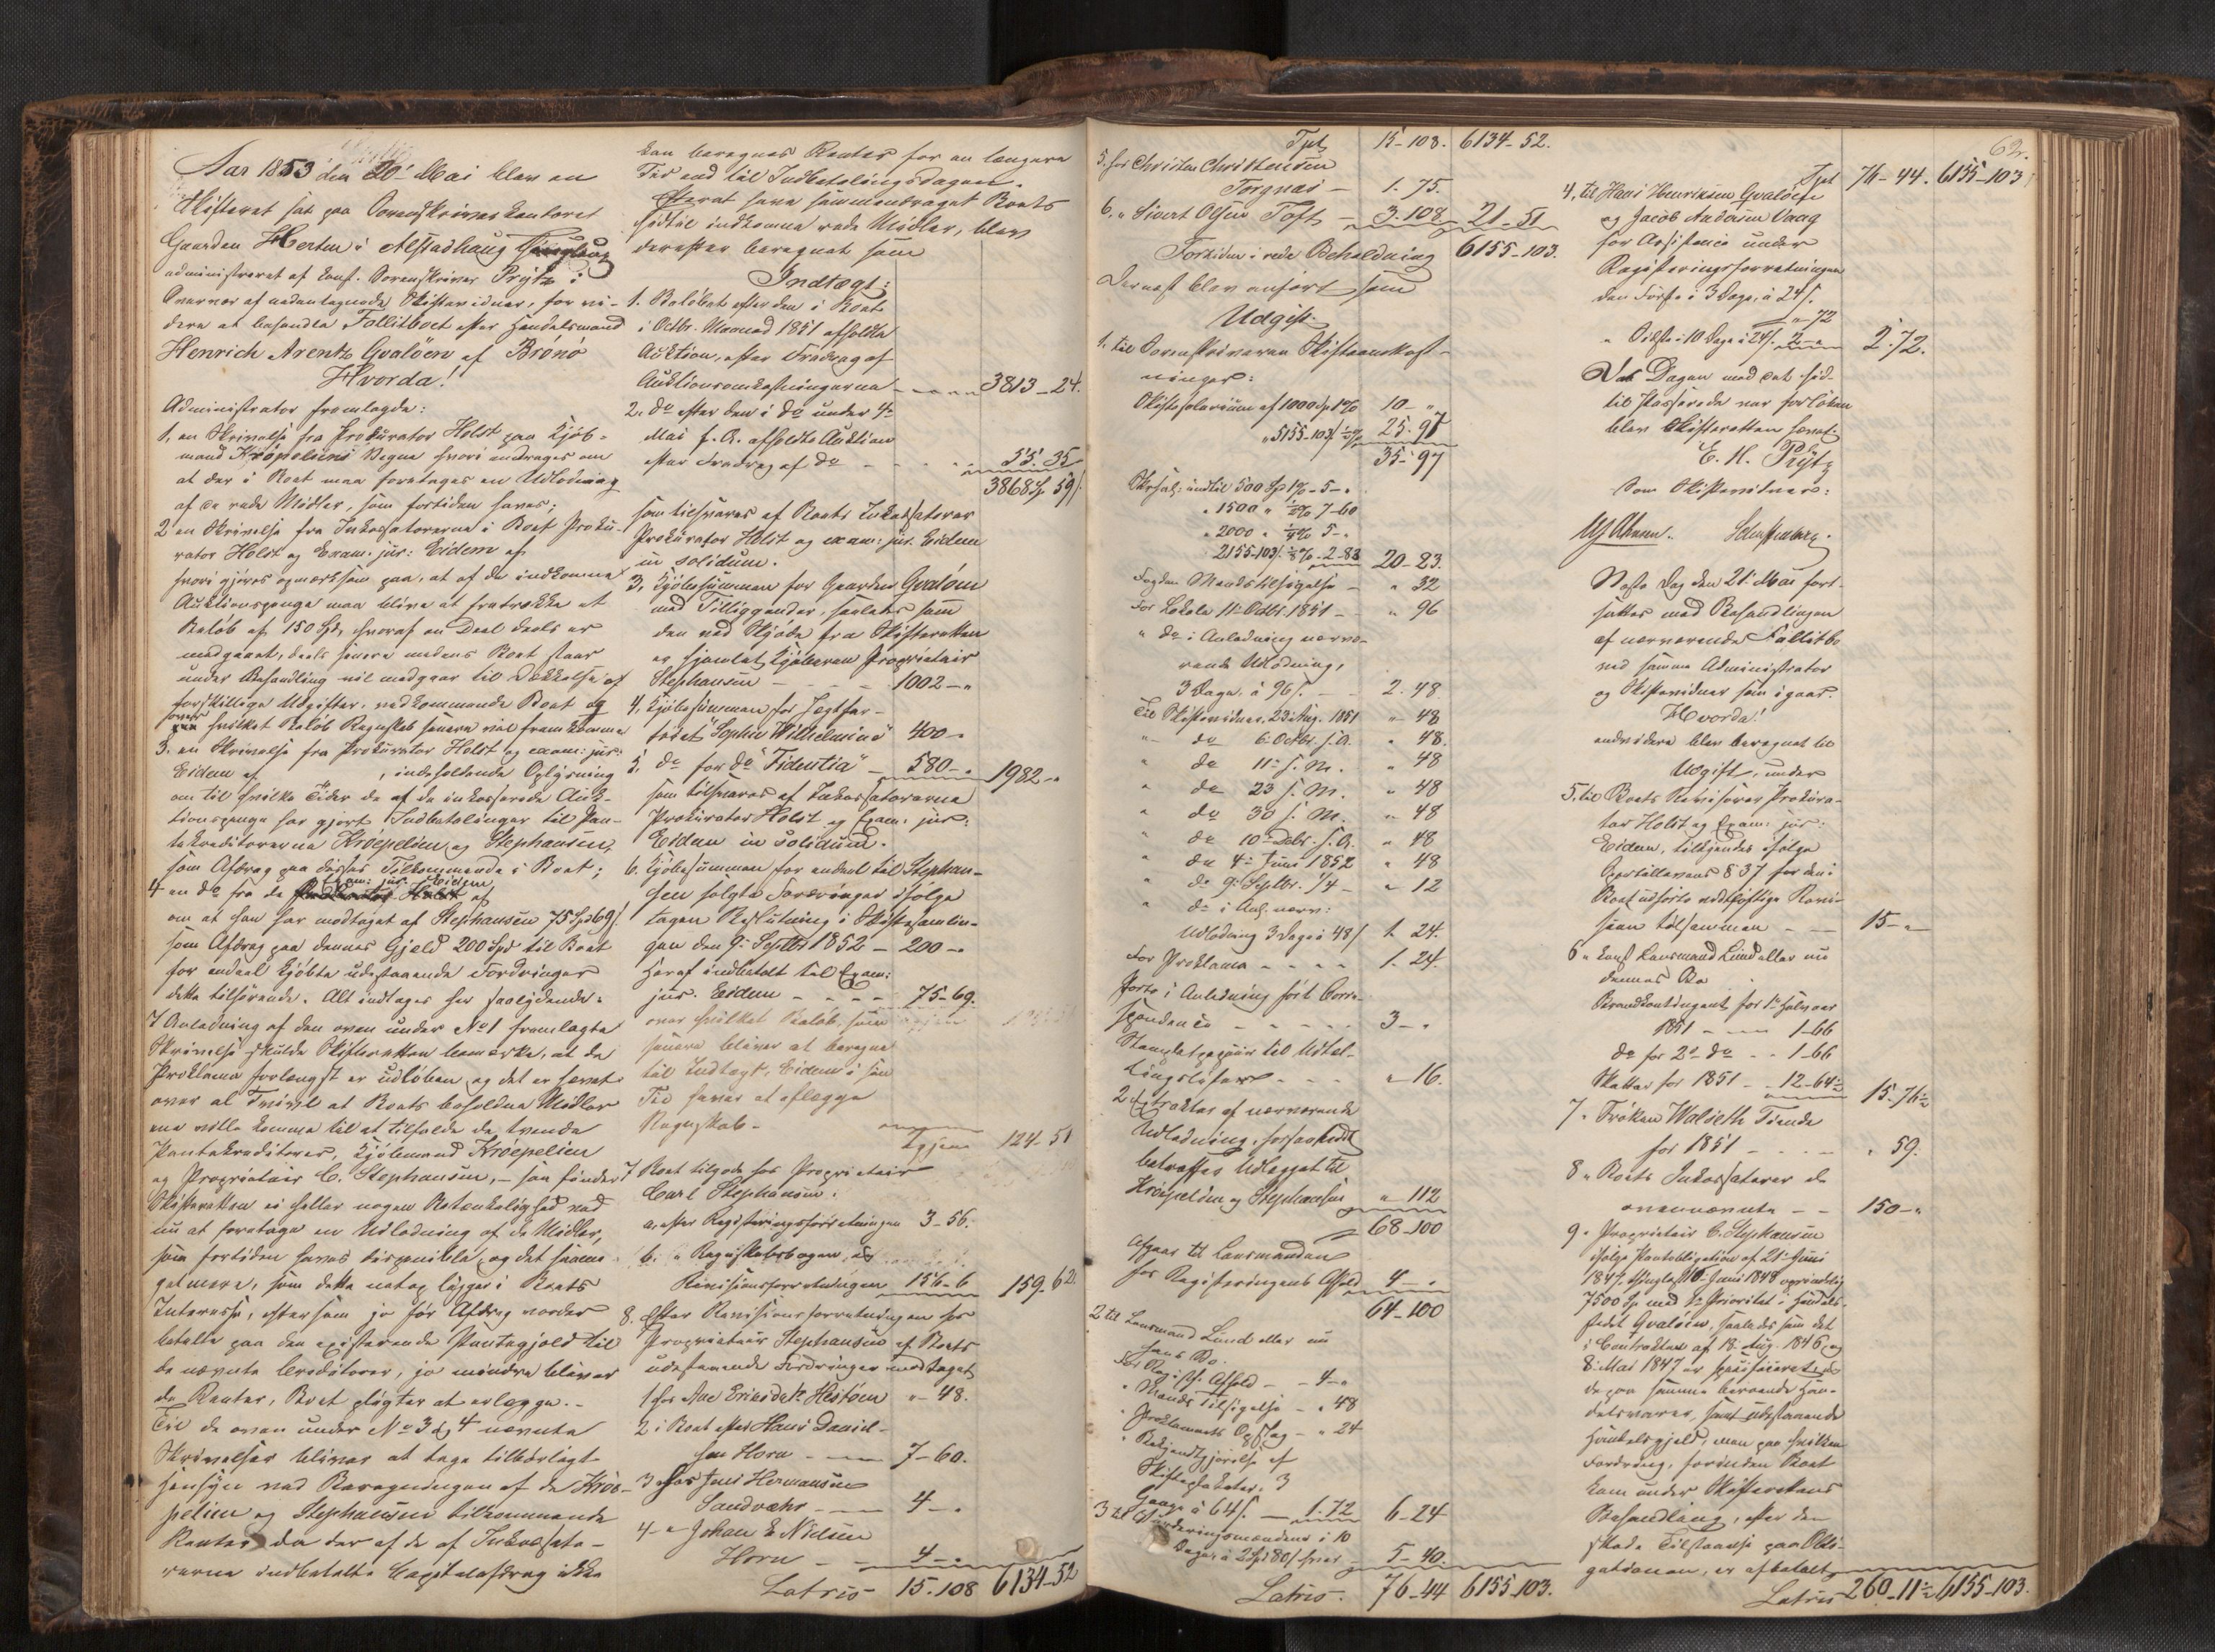 Aar 1853 den 20 Mai blev en
Skifteret sat paa Sorenskriverkontoret
Gaarden Herton i Alstadhaug
administreret af const. Sorenskriver Prÿtz i
Overvær af nedentegnede Skiftevidner, for vi-
dere at behandle Fallitboet efter Handelsmand
Henrich Arentz Qvaløen af Brönö
Hvorda!
Administrator fremlagde:
1, en Skrivelse fra Prokurator Holst paa Kjöb-
mand Kröepeliens Vegne hvori andrages om
at der i Boet maa foretages en Udlodning
af de rede Midler, som fortiden haves;
2 en Skrivelse fra Inkassatorerne i Boet Proku-
rator Holst og Exam: jur: Eidem af
hvori gjöres opmærksom paa, at af de indkomne
Auktionspenge maa blive at fratrække et
Belöb af 150 Spd, hvoraf en Deel deels er
medgaaet, deels senere medens Boet staar
under Behandling vil medgaae til Dækkelse af
forskjellige Udgifter, vedkommende Boet og
for hvilket Belöb Regnskab senere vil fremkomme
3. en Skrivelse fra Prokurator Holst og exam: jur:
Eidem af , indeholdende Oplysning
om til hvilke Tider de af de inkasserede Auk-
tionspenge har gjort Indbetalinger til Pan-
tekreditorerne Kröepelien og Stephansen,
som Afdrag paa disses Tilkommende i Boet;
4 en do fra Exam: jur: Eidem af
om at han har modtaget af Stephansen 75 Spd 69 s
som Afdrag paa dennes Gjeld 200 Spd til Boet
for endeel kjöbte udestaaende Fordringer
dette tilhörende. Alt indtages her saalydende:
I Anledning af den oven under No 1 fremlagte
Skrivelse skulde Skifteretten bemærke, at da
Proklama forlængst er udlöben og det er hævet
over al Tvivl at Boets beholdne Midler
ene ville komme til at tilfalde de tvende
Pantekreditorer, Kjöbmand Kröepelien
og Proprietair C. Stephansen, – saa finder
Skifteretten ei heller nogen Betænkelighed ved
nu at foretage en Udlodning af de Midler,
som fortiden haves disponible, og det saame-
get mere, som dette netop ligger i Boets
Interesse, eftersom jo för Afdrag vorder
betalte paa den existerende Pantegjeld til
de nævnte Creditorer, jo mindre bliver
de Renter, Boet pligter at erlægge. –
Til de oven under No 3 & 4 nævnte
Skrivelser bliver at tage tilbörligt
Hensyn ved Beregningen af de Kröe-
pelien og Stephansen tilkommende
Renter da der af de af Inkassato-
rerne indbetalte Capitalafdrag ikke
kan beregnes Renter for en længere
Tid end til Indbetalingsdagen.
Efterat have sammendraget Boets
hidtil indkomne rede Midler, blev
derefter beregnet som
Indtægt:
1. Belöbet efter den i Boet
i Octbr. Maaned 1851 afholdte
Auktion, efter Fradrag af
Auktionsomkostningerne – 3813 – 24.
2. Do efter den i do under 4de
Mai f. A. afholdte Auktion
efter Fradrag af do – 55. 35
3868 Sp 59 s
som tilsvares af Boets Inkassatorer
Prokurator Holst og exam: jur. Eidem
in solidum.
3. Kjöbesummen for Gaarden Qvalöen
med Tilliggender, saaledes som
den ved Skjöde fra Skifteretten
er hjemlet Kjöberen Proprietair
Stephansen – 1002 – "
4. Kjöbesummen for Jægtfar-
töiet "Sophie Wilhelmine" 400 –
5. do for do "Fidentia" – 580 – " 1982 – "
som tilsvares af Inkassatorerne
Prokurator Holst og Exam: jur:
Eidem in solidum.
6. Kjöbesummen for endeel til Stephan-
sen solgte Fordringer ifölge
tagen Beslutning i Skiftesamlin-
gen den 9de Septbr 1852 – 200 –
heraf indbetalt til Exam:
jur. Eidem – 75 – 69.
over hvilket Belöb som
senere bliver at beregne
til Indtægt, Eidem i sin
Tid haver at aflægge
Regnskab –
igjen 124 – 51
7 Boet tilgode hos Proprietair
Carl Stephansen:
a. efter Registreringsforretningen 3 – 56.
b. " Regnskabsbogen og
Revisionsforretningen 156 – 6 159 – 62
8. efter Revisionsforretningen hos
Proprietair Stephansen af Boets
udestaaende Fordringer modtaget
1 hos Ane Ericsdtr Hestöen " – 48.
2 i Boet efter Hans Daniel-
sen Horn – 7 – 60.
3 hos Jens Hermansen
Sandvær – 4 – "
4 – " Johan E. Nielsen
Horn – 4 – "
Latris – 15. 108 6134 – 52
Tpt 15 – 108. 6134 – 52.
5. hos Christen Christensen
Torgnæs – 1. 75.
6. " Sivert Olsen Toft – 3. 108. 21 – 51
Fortiden i rede Beholdning 6155 – 103.
Dernæst blev anfört som
Udgift.
1. til Sorenskriveren Skifteomkost-
ninger:
Skiftesalarium af 1000 Sp 1% 10 – "
" 5155 – 103 s ½% 25. 97
35 – 97
Skrsal: indtil 500 Sp 1% – 5 – "
" 1500 " ½% 7 – 60
" 2000 " ¼% 5 – "
" 2155 – 103 s ⅛% – 2 – 83 20 – 23.
Fogden Mandstilsigelse – " 32
For Lokale 11te Octbr. 1851 – " 96
" do i Anledning nærvæ-
rende Udlodning,
3 Dage, à 96 s. – 2. 48
Til Skiftevidner, 23de Aug. 1851 " – 48
" do 6te Octbr. s. A. " 48.
" do 11te s. M. " 48
" do 23 s. M. " 48
" do 30 s. M. " 48
" do 10de Debr. s. A. " 48
" do 4de Juni 1852 " 48
" do 9de Septbr. ¼ – " 12
" do i Anl. nærv:
Udlodning 3 Dage à 48 s 1. 24.
For Proklama – 1. 24.
Porto i Anledning fört Corre-
spondence – 3 – "
Stemplet papiir til Udtel-
lingslisten – " 16.
2 Extrakter af nærværende
Udlodning, forsaavidt
betræffer Udlægget til
Kröepelien og Stephansen " 112
68 – 100
Afgaar til Lensmanden
for Registreringens Afhold 4 – "
64 – 100
2 til Lensmand Lund eller nu
hans Bo.
For Reg. sf. Afhold – 4 – "
" Mands Tilsigelse – " 48
" Proklamaets Opslag – " 24
" Bekjendtgjörelse af
Skifteplakater, 3
Gange à 64 s. – 1. 72 6 – 24
3 til Vurderingsmændene i 10
Dage à 2 Spd 80 s hver – 5 – 40.
Latris. 76 – 44 6155 – 103.
62.
Tpt 76 – 44. 6155 – 103
4, til Hans Henriksen Qvalöen
og Jacob Andersen Vaag
for Assistence under
Registreringsforretningen
den Förste i 3 Dage, à 24 s.
" – 72
" Sidste i 10 Dage à 24 s. 2 – " 2. 72.
Da Dagen med det hid-
til Passerede var forlöben
blev Skifteretten hævet.
E. H. Prÿtz
Som Skiftevidner:
Næste Dag den 21de Mai fort-
sattes med Behandlingen
af nærværende Fallitbo
ved samme Administrator
og Skiftevidner som igaar.
Hvorda!
endvidere blev beregnet til
Udgift, under
5. til Boets Revisorer Prokura-
tor Holst og Exam: jur:
Eidem, tilkjendes ifölge
Sportellovens § 37 for den i
Boet udförte vidtlöftige Revi-
sion tilsammen – 15 – "
6 " const Lensmand Lund eller nu
dennes Bo
Brandkontingent for 1ste Halvaar
1851 – 1 – 66
do for 2det do – 1 – 66
Skatter for 1851 – 12 – 64½ 15 – 76½
7. Fröken Walseth Tiende
for 1851 – " 59.
8 " Boets Inkassatorer de
ovennævnte – 150 – "
9. Proprietair C. Stephansen
ifölge Pantobligation af 21de Juni
1847, thinglæst 16 Juni 1848 oprindelig
7500 Sp med 1ste Prioritet i Handels-
stedet Qvalöen, saaledes som det
i Contrakten af 18. Aug. 1846 og
8. Mai 1847 er specificeret og
de paa samme beroende Han-
delsvarer, samt udestaaende
Handelsgjeld, men paa hvilken
Fordring, forinden Boet
kom under Skifterettens
Behandling, efter den
skete Tilstaaelse paa Obli-
gationen, er afbetalt
Latris 260 – 11½ 6155 – 103.